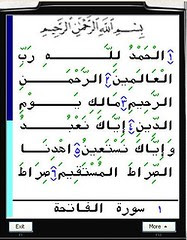 بِسْمِ اللَّهِ الرَّحْمَٰنِ الرَّحِيمِ
١ الْحَمْدُ لِلَّهِ رَبِّ
الْعَالَمِينَ ٢ الرَّحْمَنِ
الرَّحِيمِ ٣ مَالِكِ يَوْمِ
الدِّينِ ٤ إِيَّاكَ نَعْبُدُ
وَإِيَّاكَ نَسْتَعِينُ ٥ اهْدِنَا
الصِّرَاطَ الْمُسْتَقِيمَ ٦ صِرَاطَ
١ سورة الفاتحة
Exit More